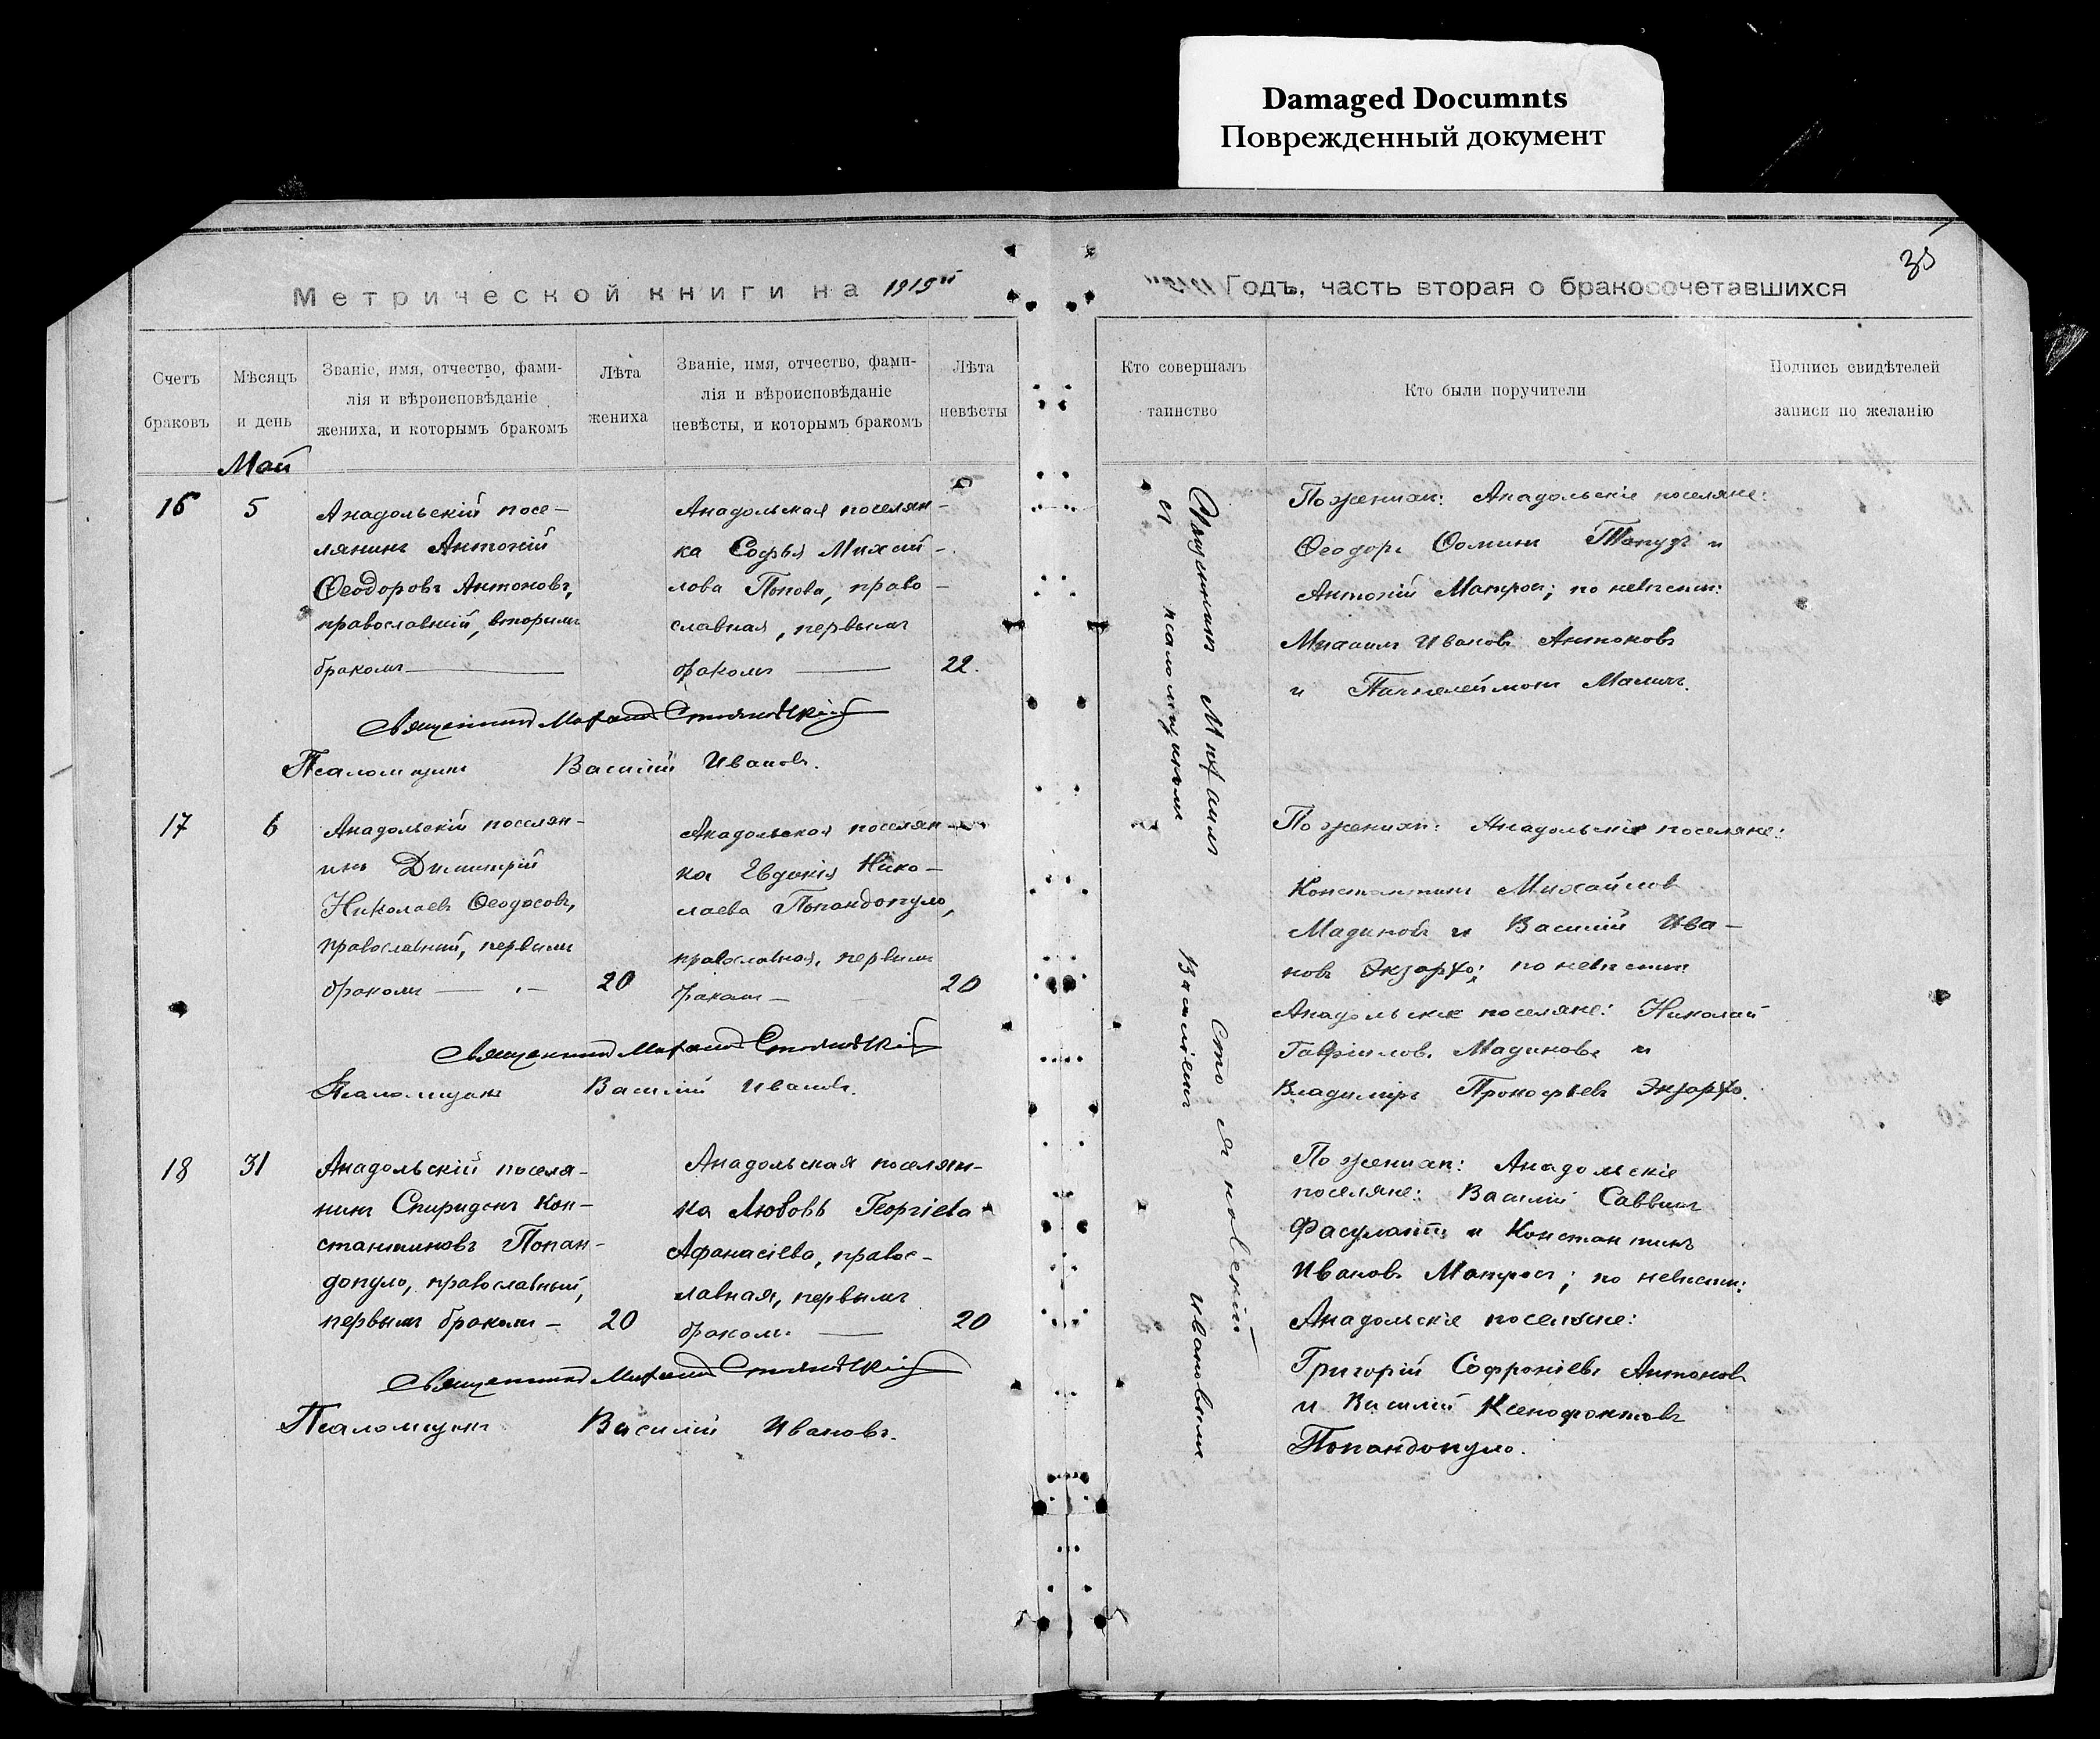 Damaged Documnts
Поврежденный документ
35
Метрической книги на 1919й
Годъ, часть вторая о бракосочетавшихся
Счетъ браковъ
Мѣсяцъ и день
Званіе, имя, отчество, фами-
лія и вѣроисповѣданіе
жениха, и которымъ бракомъ
Лѣта жениха
Званіе, имя, отчество, фами-
лія и вѣроисповѣданіе
невѣсты, и которымъ бракомъ
Лѣта невѣсты
Кто совершалъ таинство
Кто были поручители
Подпись свидѣтелей
записи по желанію
Май
16
5
Анадольскій посе-
лянинъ Антоній
Ѳеодоровъ Антоновъ,
православный, вторымъ
бракомъ
Анадольская поселян-
ка Софья Михай-
лова Попова, право-
славная, первымъ
бракомъ
22.
По женихѣ: Анадольскіе поселяне:
Ѳеодоръ Ѳоминъ и
Антоній Матросъ; по невѣстѣ:
Михаилъ Ивановъ Антоновъ
и Пантелеймонъ
Священникъ Михаилъ Стояновскій
Псаломщикъ Василій Ивановъ.
17
6
Анадольскій поселян-
инъ Димитрій
Николаевъ Ѳеодосовъ,
православный, первымъ
бракомъ
20
Анадольская поселян-
ка Евдокія Нико-
лаева Попандопуло,
православная, первымъ
бракомъ
20
По женихѣ: Анадольскіе поселяне:
Константинъ Михайловъ
Мадиновъ и Василій Ива-
новъ Экзархо; по невѣстѣ:
Анадольскіе поселяне: Николай
Гавріиловъ Мадиновъ и
Владиміръ Прокофьевъ Экзархо.
Священникъ Михаилъ Стояновскій
Псаломщикъ Василій Ивановъ.
18
31
Анадольскій поселя-
нинъ Спиридонъ Кон-
стантиновъ Попан-
допуло, православный,
первымъ бракомъ
20
Анадольская поселян-
ка Любовь Георгіева
Афанасіева, правос-
лавная, первымъ
бракомъ
20
По женихѣ: Анадольскіе
поселяне: Василій Саввинъ
и Константинъ
Ивановъ Матросъ; по невѣстѣ:
Анадольскіе поселяне:
Григорій Софроніевъ Антоновъ
и Василій Ксенофонтовъ
Попандопуло.
Священникъ Михаилъ Стояновскій
Псаломщикъ Василій Ивановъ.
Священникъ Михаилъ Стояновскій
съ псаломщикомъ Василіемъ Ивановымъ